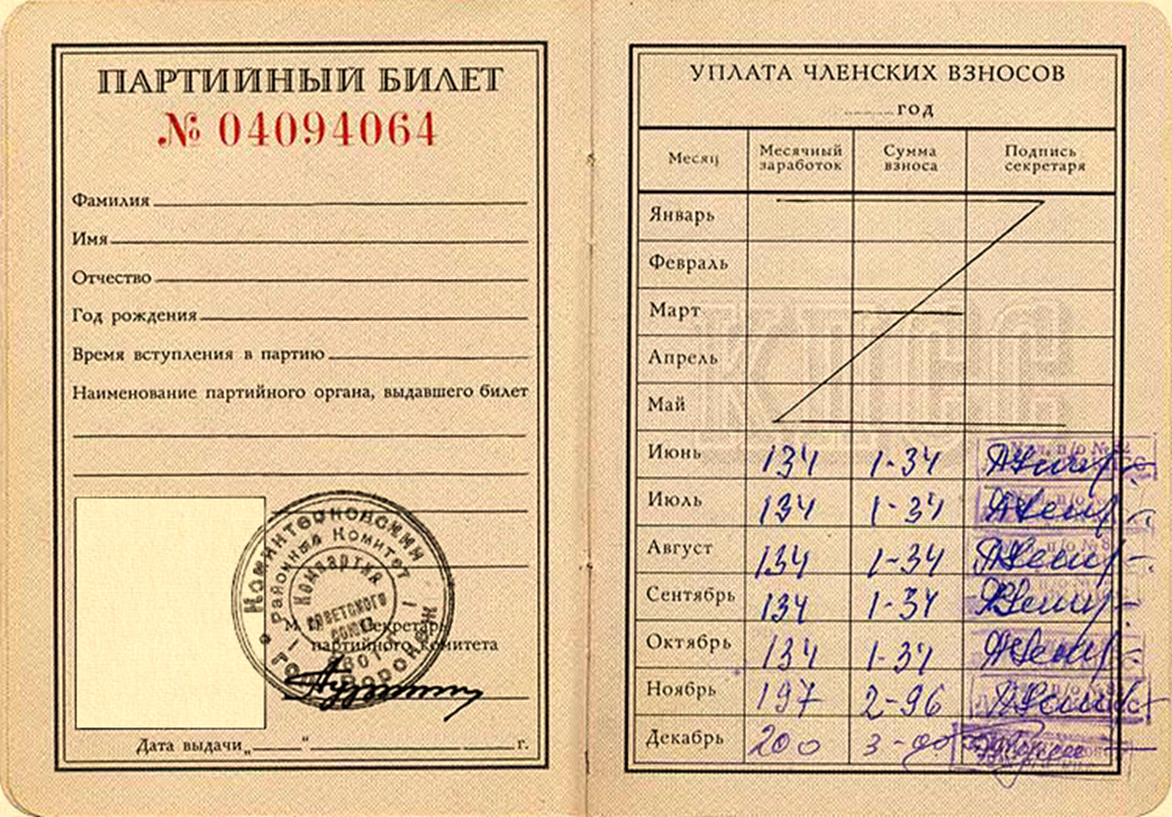 ПАРТИЙНЫЙ БИЛЕТ
№ 04094064
Фамилия
Имя
Отчество
Год рождения
Время вступления в партию
Наименование партийного органа, выдавшего билет
Коминтерновский
Районный Комитет
Компартия
Советского
Союза
гор. Воронеж
М. П. Секретарь
партийного комитета
Дата выдачи „ “ г.
УПЛАТА ЧЛЕНСКИХ ВЗНОСОВ
год
Месяц Месячный заработок Сумма взноса Подпись секретаря
Январь
Февраль
Март
Апрель
Май
КПСС
Июнь 134 1-34
Июль 134 1-34
Август 134 1-34
Сентябрь 134 1-34
Октябрь 134 1-34
Ноябрь 197 2-96
Декабрь 200 3-00